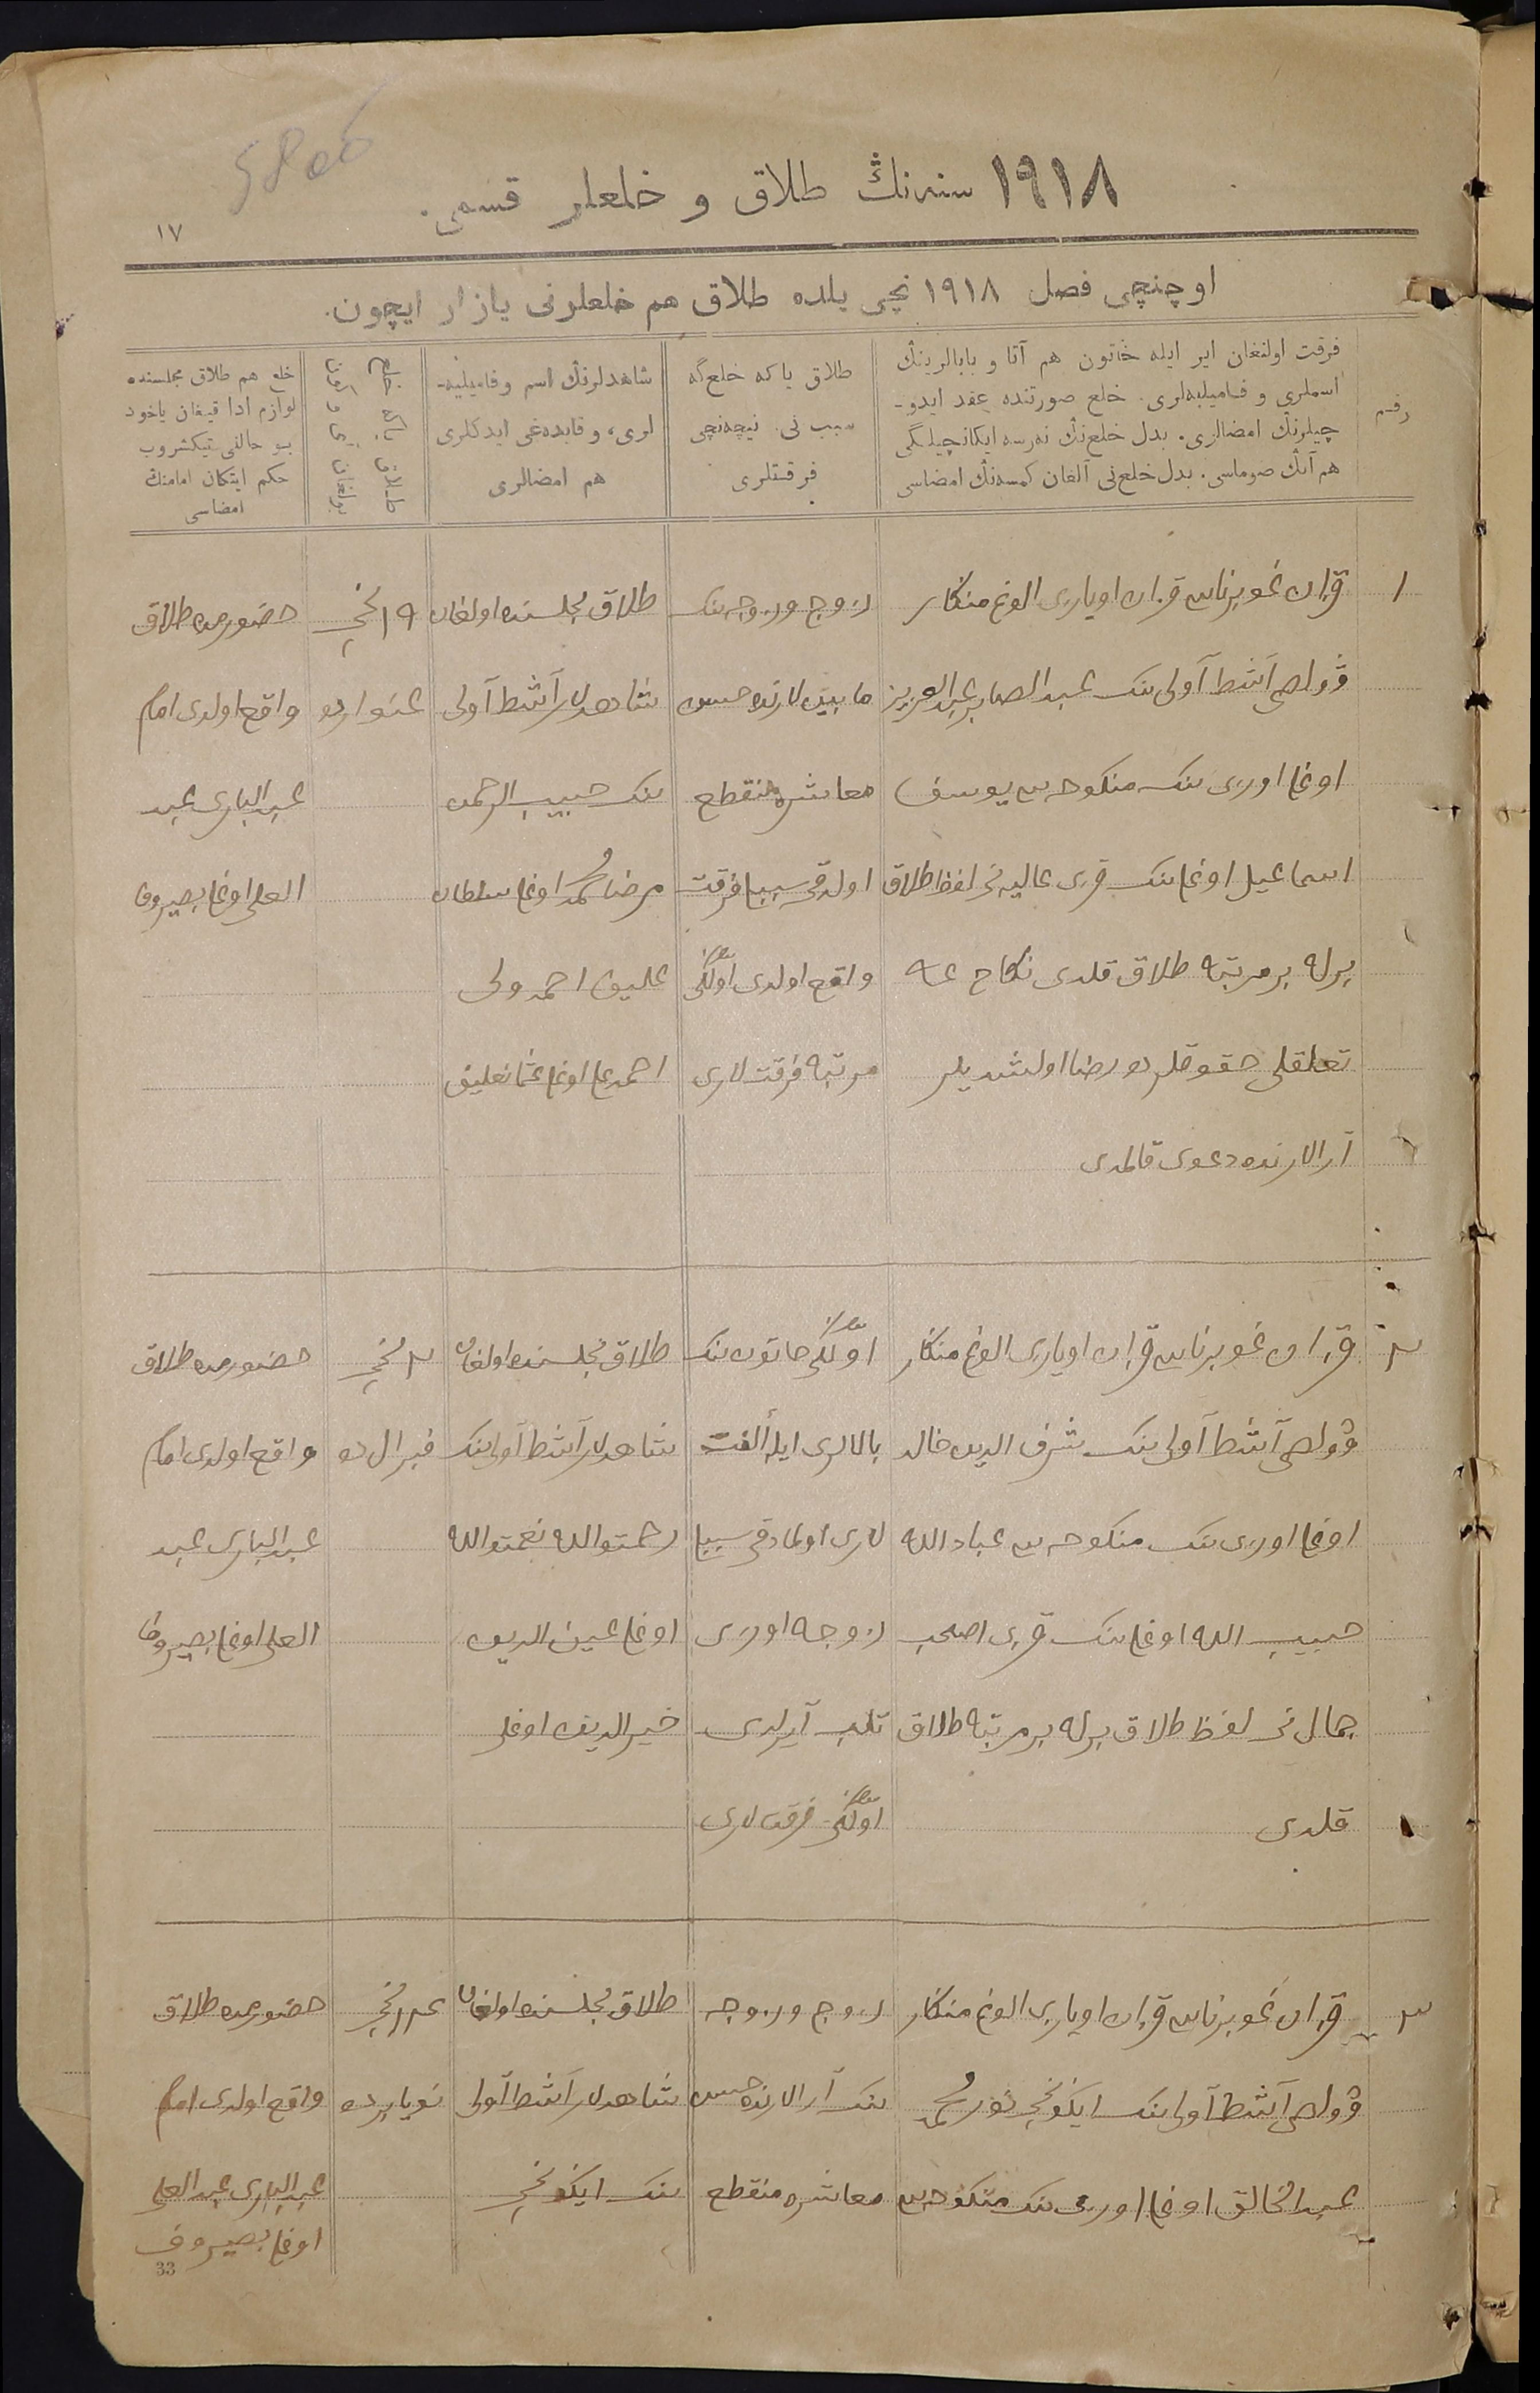 ١٩١٨ سنه‌نڭ طلاق و خلعلر قسمی.
١٧
اوچنچی فصل ١٩١٨ نچی یلده طلاق هم خلعلرنی یازار ایچون.
رقم
فرقت اولنغان ایر ایله خاتون هم آتا و بابالرینڭ
اسملری و فامیلیه‌لری. خلع صورتنده عقد ایدو-
چیلرنڭ امضالری. بدل خلع‌نڭ نه‌رسه ایکانچیلیگی
هم آنڭ صوماسی. بدل خلع‌نی آلغان کمسه‌نڭ امضاسی
طلاق یاکه خلع‌گه
سبب نی. نیچه‌نچی
فرقتلری
شاهدلرنڭ اسم و فامیلیه-
لری، و قایده‌غی ایدکلری
هم امضالری
خلع هم طلاق مجلسنده
لوازم ادا قیلغان یاخود
بو حالنی تیکشروب
حکم ایتکان امامنڭ
امضاسی
١
قزان غوبرناسی قزان اویازی الوغ منکار
ڤولصی آشط آولی ننک عبد الصابر عبد العزیز
اوغلی اوزی ننک منکوحه سی یوسف
اسماعیل اوغلی ننک قزی عالیه نی لفظ طلاق
برله بر مرتبه طلاق قلدی نکاح غه
تعلقلی حقوقلرده رضا اولشدیلر
آرالارنده دعوی قالمدی
زوج و زوجه ننک
مابینلارنده حسن
معاشره منقطع
اولدقی سببلی فرقت
واقع اولدی اولگی
مرتبه فرقت لاری
طلاق مجلسنده اولغان
شاهدلار آشط آولی
ننک حبیب الرحمن
مرضا محمد اوغلی سلطان
علیف احمد ولی
احمدعلی اوغلی عثمانعلیف
١٩ نچی
غنواردە
حضورمده طلاق
واقع اولدی امام
عبد الباری عبد
العلی اوغلی بصیروف
٢
قزان غوبرناسی قزان اویازی الوغ منکار
ڤولصی آشط آولی ننک شرف الدین خالد
اوغلی اوزی ننک منکوحه سی عباد الله
حبیب الله اوغلی ننک قزی اصحب
جمال نی لفظ طلاق برله بر مرتبه طلاق
قلدی
اولگی خاتون ننک
بالالری ایله ألفت
لاری اولمادقی سببلی
زوجه اوزی
تلب آیرلدی
اولگی فرقت لاری
طلاق مجلسنده اولغان
شاهدلار آشط آولی ننک
رحمت الله نعمت الله
اوغلی عین الدین
خیر الدین اوغلی
٢ نچی
فبرال ده
حضورمده طلاق
واقع اولدی امام
عبد الباری عبد
العلی اوغلی بصیروف
٣
قزان غوبرناسی قزان اویازی الوغ منکار
ڤولصی آشط آولی ننک ایکنچی نور محمد
عبد الخالق اوغلی اوزی ننک منکوحه سی
زوج و زوجه
ننک آرالارنده حسن
معاشره منقطع
طلاق مجلسنده اولغان
شاهدلار آشط آولی
ننک ایکنچی
نویابرده
حضورمده طلاق
واقع اولدی امام
عبد الباری عبد العلی
اوغلی بصیروف
33